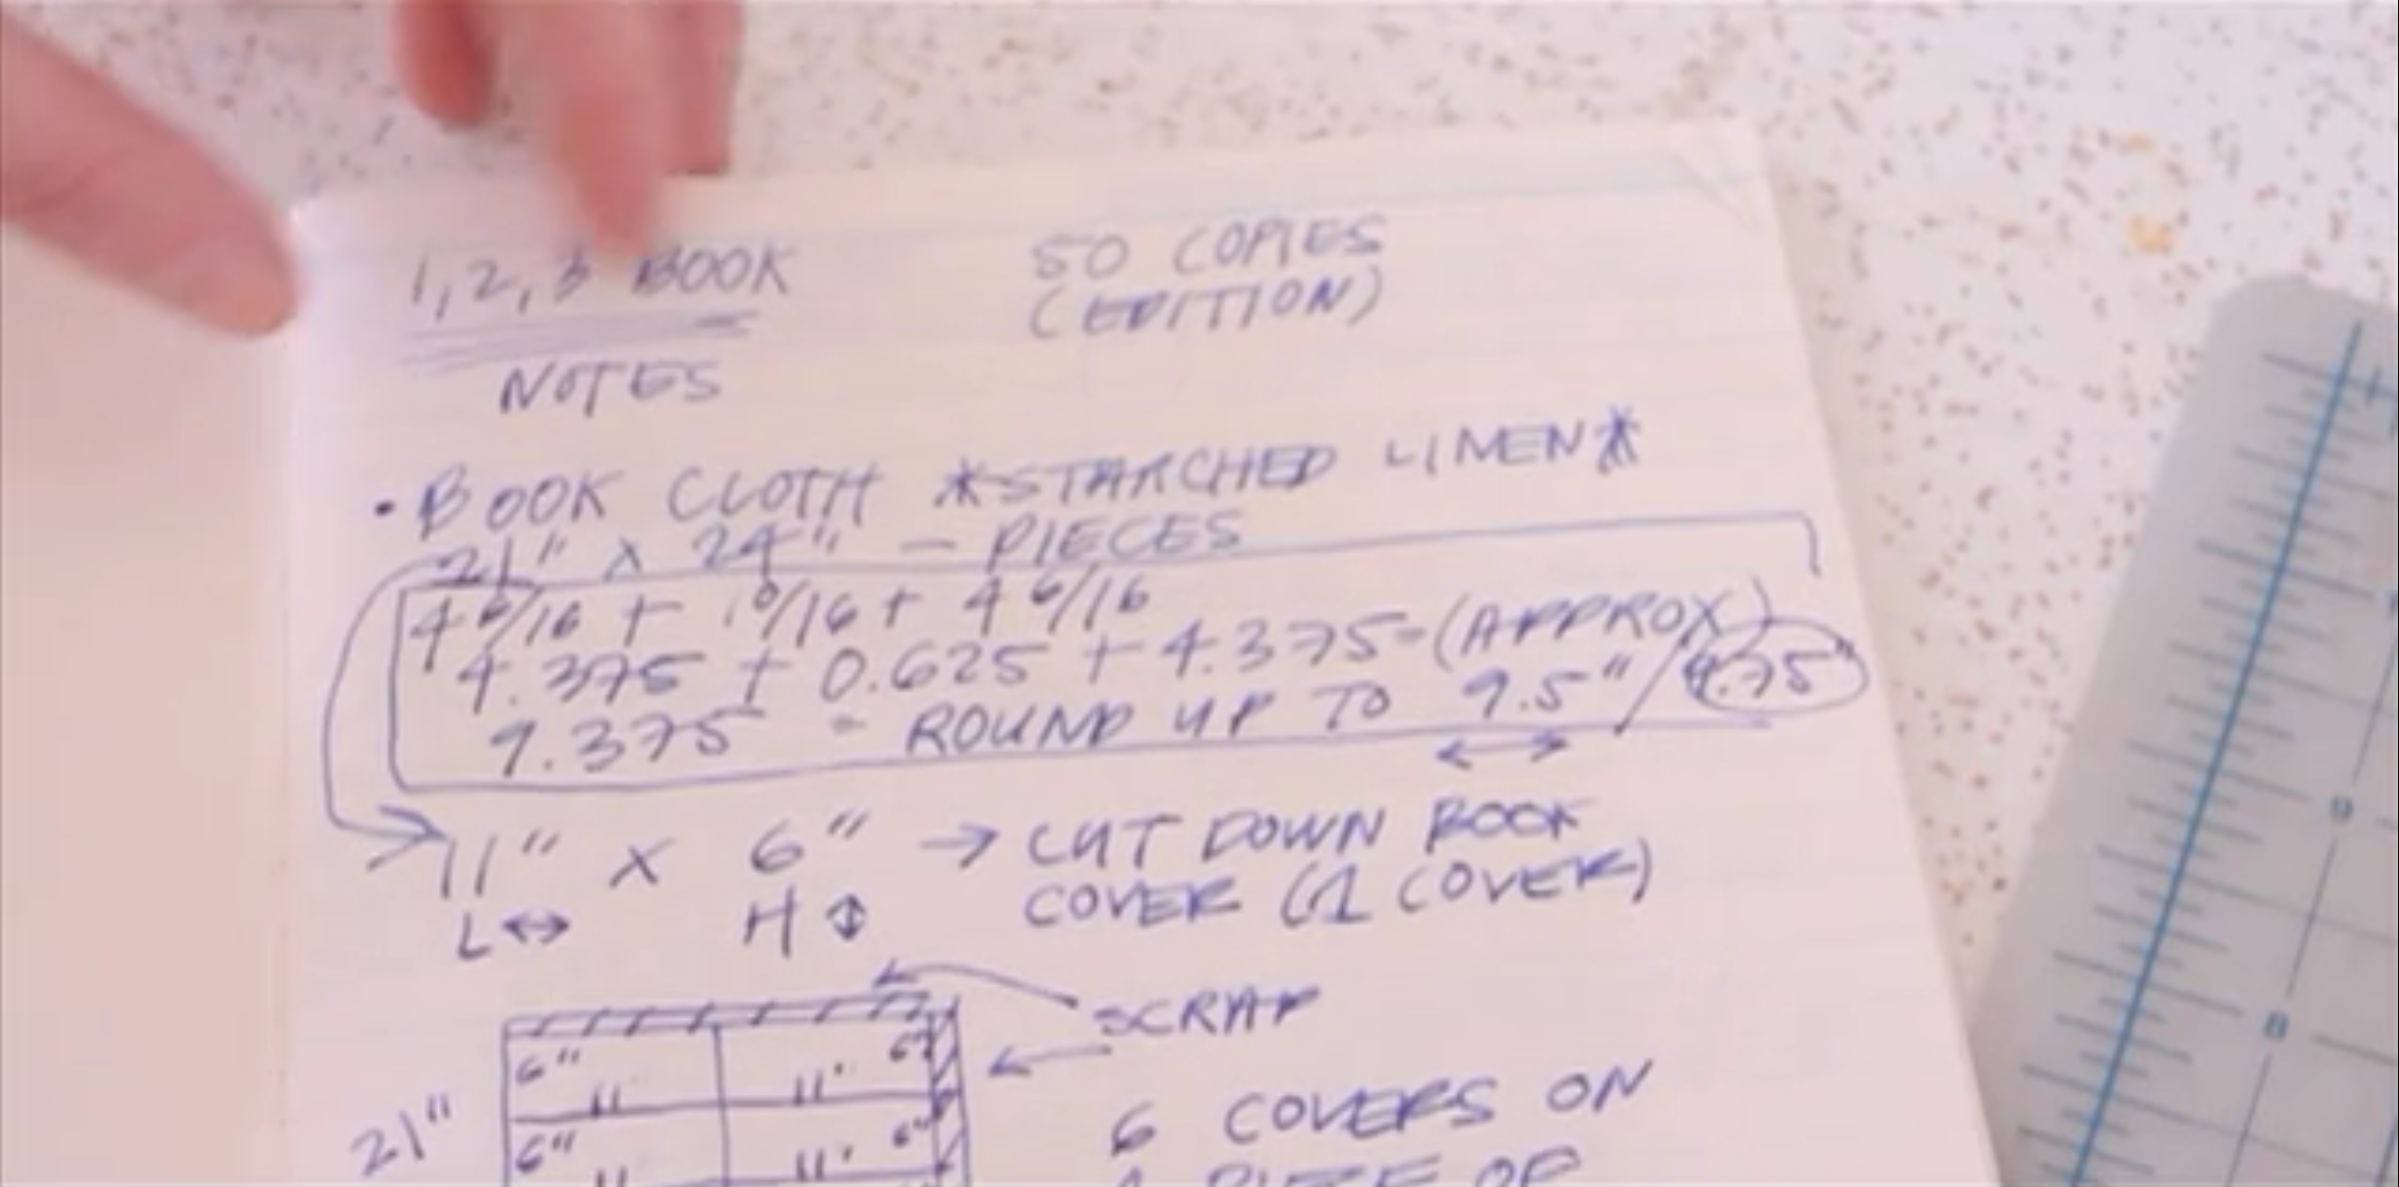 1,2,3 BOOK
NOTES
50 COPIES
(EDITION)
• BOOK CLOTH *STARCHED LINEN*
21" x 24" – PIECES
4 6/16 + 10/16 + 4 6/16
4.375 + 0.625 + 4.375 = (APPROX)
9.375 = ROUND UP TO 9.5" / 9.75"
11" x 6" → CUT DOWN BOOK
L ↔ H ↕ COVER (1 COVER)
SCRAP
6" 6"
11 11"
21"
6" 6"
11 11"
6 COVERS ON
1 PIECE OF
9
8